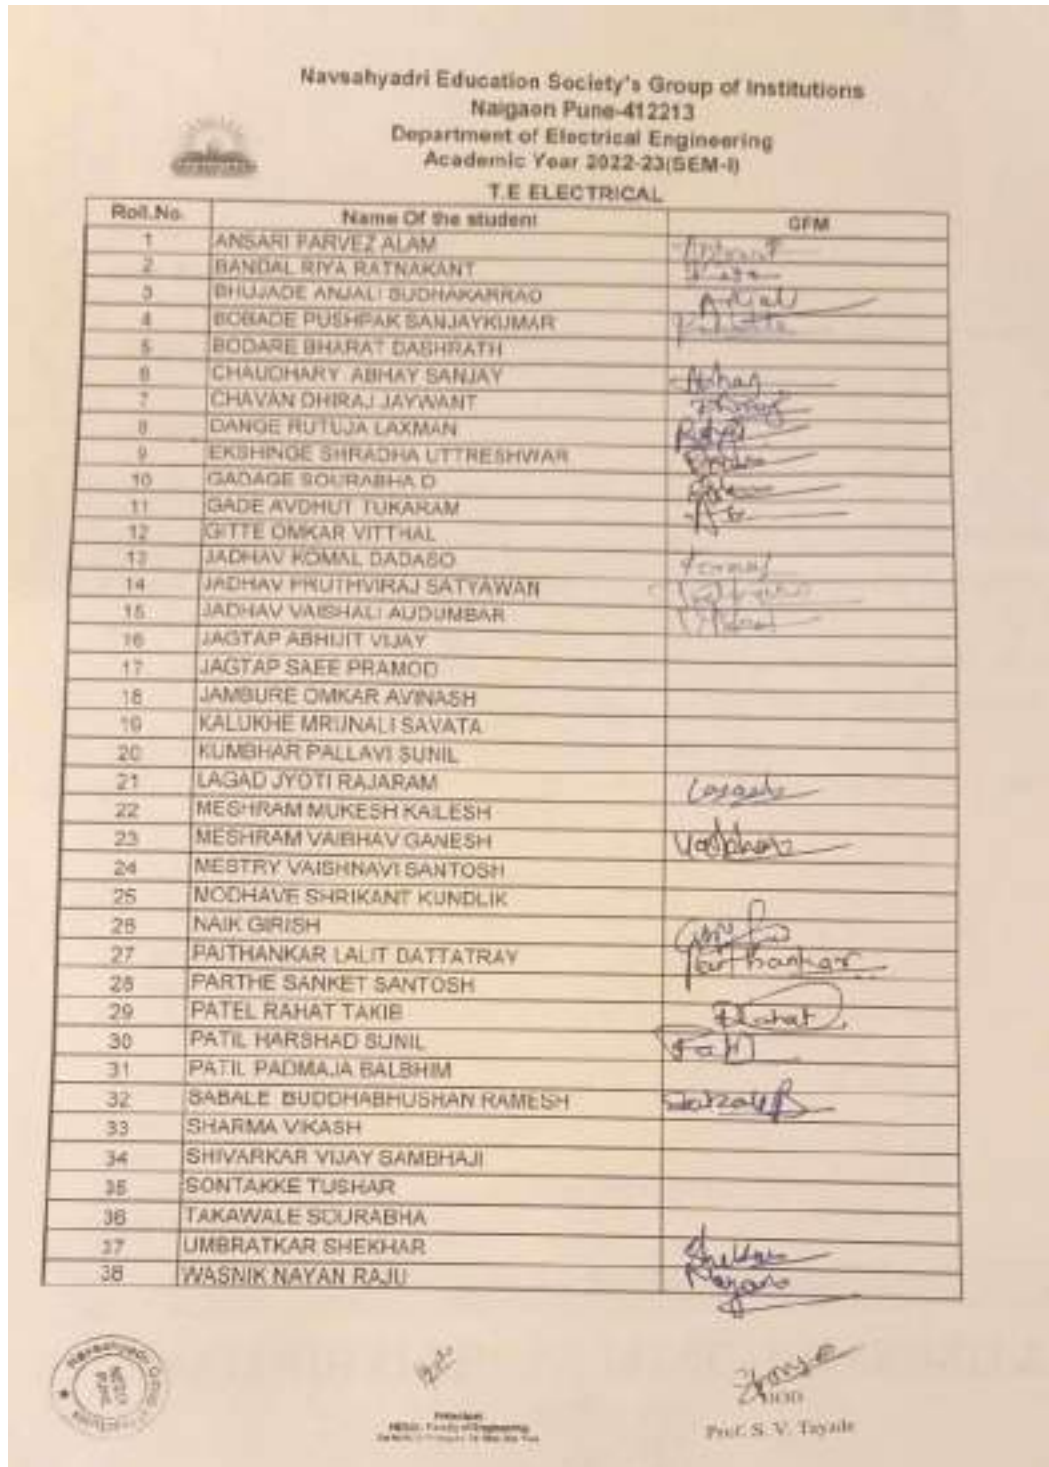 Navsahyadri Education Society's Group of Institutions
Naigaon Pune-412213
Department of Electrical Engineering
Academic Year 2022-23(SEM-I)
T.E ELECTRICAL
Roll.No. Name Of the student GFM
1 ANSARI PARVEZ ALAM
2 BANDAL RIYA RATNAKANT Riya
3 BHUJADE ANJALI SUDHAKARRAO Anjali
4 BOBADE PUSHPAK SANJAYKUMAR
5 BODARE BHARAT DASHRATH
6 CHAUDHARY ABHAY SANJAY Abhay
7 CHAVAN DHIRAJ JAYWANT
8 DANGE RUTUJA LAXMAN
9 EKSHINGE SHRADHA UTTRESHWAR
10 GADAGE SOURABHA D
11 GADE AVDHUT TUKARAM
12 GITTE OMKAR VITTHAL
13 JADHAV KOMAL DADASO Komal
14 JADHAV PRUTHVIRAJ SATYAWAN
15 JADHAV VAISHALI AUDUMBAR
16 JAGTAP ABHIJIT VIJAY
17 JAGTAP SAEE PRAMOD
18 JAMBURE OMKAR AVINASH
19 KALUKHE MRUNALI SAVATA
20 KUMBHAR PALLAVI SUNIL
21 LAGAD JYOTI RAJARAM
22 MESHRAM MUKESH KAILESH
23 MESHRAM VAIBHAV GANESH Vaibhav
24 MESTRY VAISHNAVI SANTOSH
25 MODHAVE SHRIKANT KUNDLIK
26 NAIK GIRISH
27 PAITHANKAR LALIT DATTATRAY Paithankar
28 PARTHE SANKET SANTOSH
29 PATEL RAHAT TAKIB Rahat
30 PATIL HARSHAD SUNIL Patil
31 PATIL PADMAJA BALBHIM
32 SABALE BUDDHABHUSHAN RAMESH
33 SHARMA VIKASH
34 SHIVARKAR VIJAY SAMBHAJI
35 SONTAKKE TUSHAR
36 TAKAWALE SOURABHA
37 UMBRATKAR SHEKHAR Shekhar
38 WASNIK NAYAN RAJU Nayan
Navsahyadri
Principal
Faculty of Engineering
HOD
Prof. S. V. Tayade